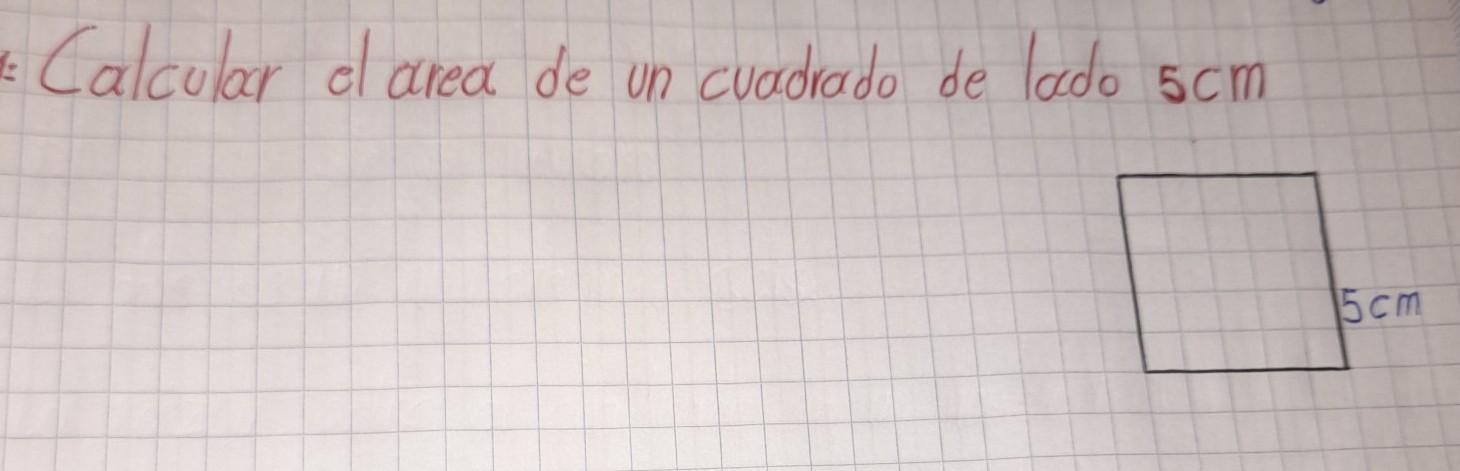 Calcular el area de un cuadrado de lado 5cm
5cm